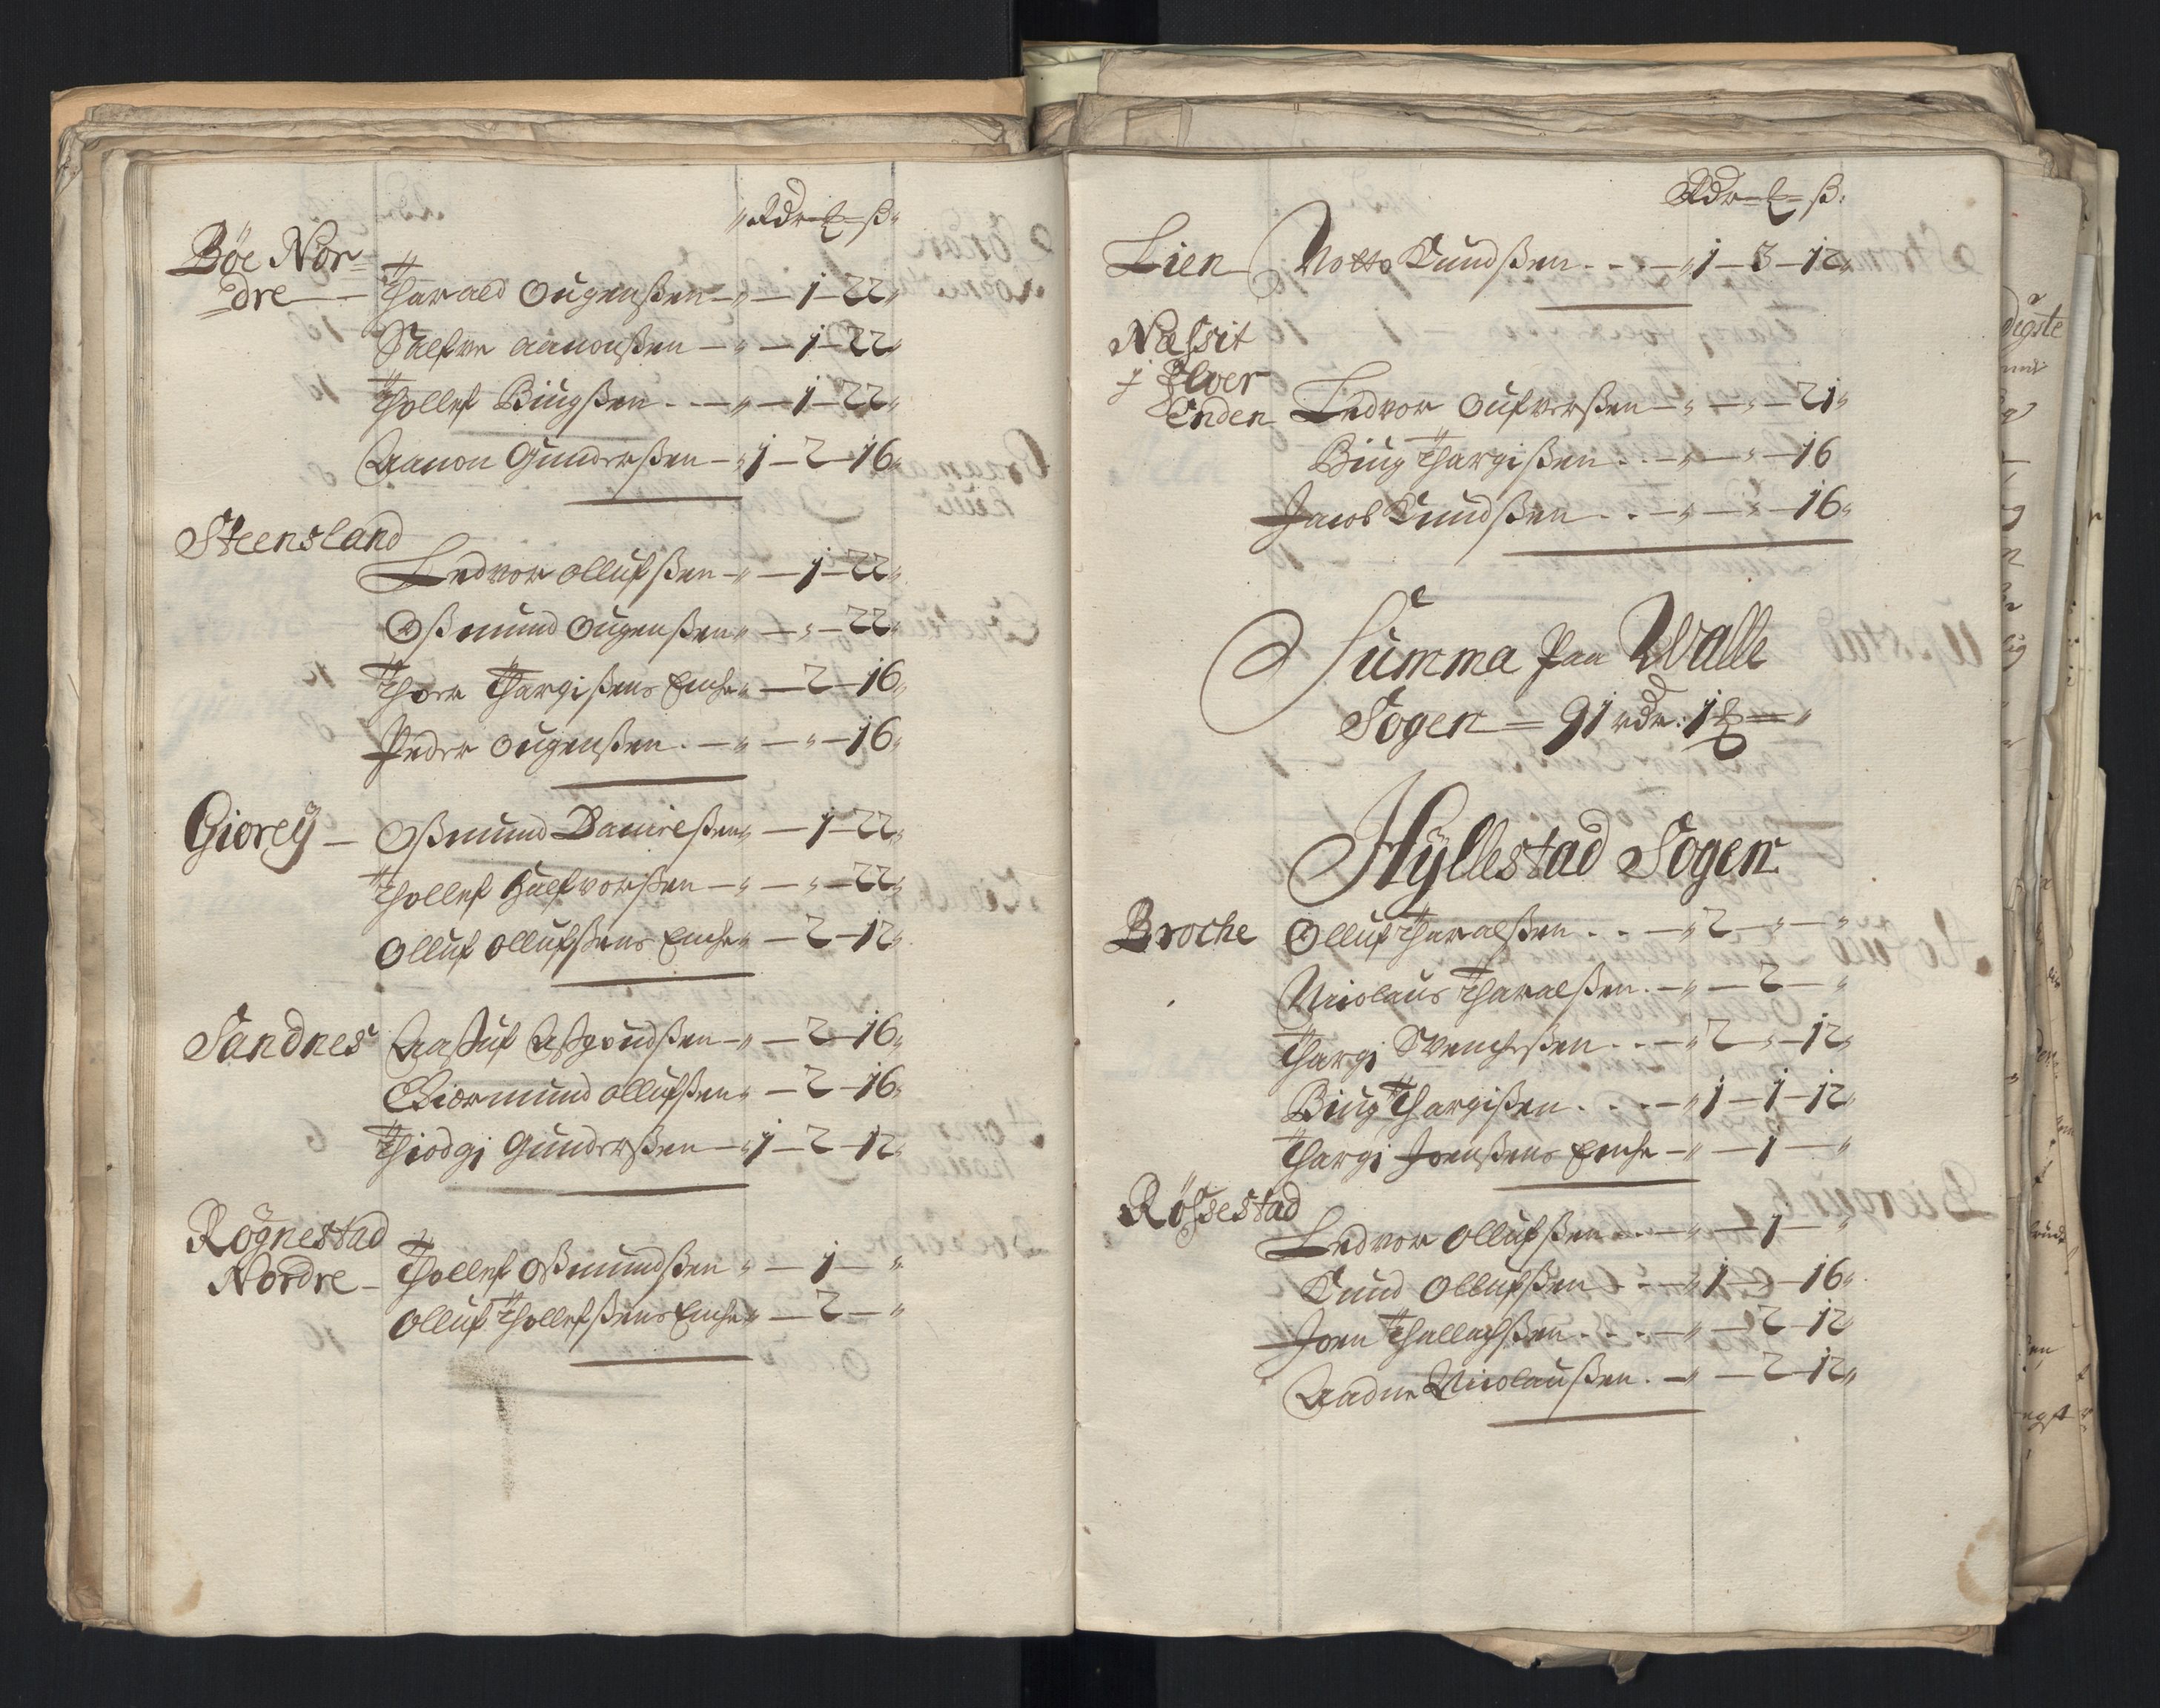 " Rdr – ℔ – ß "
Böe Nor=
=dre — Tharald Ougenßen — " — 1 — 22 "
Salfve Aanonßen — " — 1 — 22 "
Thollef Biugßen . — " — 1 — 22 "
Aanon Gunderßen — " 1 — 2 — 16 "
Steensland
Ledvor Ollufßen — " — 1 — 22 "
Oßmund Ougenßen " — " — 22 "
Thore Thargißens Enche " — 2 — 16 "
Peder Ougenßen . — " — " — 16 "
Giorëÿ — Oßmund Danielßen " — 1 — 22 "
Thollef Halfvorßen — " — " — 22 "
Olluf Ollufßens Enche " — 2 — 12 "
Sandnes Aasluf Asgoudßen — " — 2 — 16 "
Giermund Ollufßen " — 2 — 16 "
Thiodgj Gunderßen — " 1 — 2 — 12 "
Rögnestad
Nordre — Thollef Oßmundßen " — 1 — "
Olluf Thollefßens Enche " — 2 — "
Rdr = ℔ = ß :
Lien Notto Knudßen . . . — " 1 — 3 — 12 "
Næssit
j Ifver
Enden Ledvor Oufverßen — " — " — 21 "
Biug Thargißen . . — " — " — 16
Jacob Knudßen . . — " — " — 16 "
Summa Paa Walle
Sogen = 91 rdr : 1 ℔ = "
Hÿllestad Sogen
Broche Olluf Tharalßen . . — " 2 — " — "
Nicolaus Tharalßen . — " — 2 — "
Thargj Svencheßen . . — " 2 — " — 12 "
Biug Thargißen . . . — " 1 — 1 — 12 "
Thargj Joenßens Enche — " — 1 — "
Rössestad
Ledvor Ollufßen . . — " — 1 — "
Knud Ollufßen . . — " 1 — " — 16 "
Joen Thallachßen . . . — " — 2 — 12 "
Aadne Nicolaußen . — " — 2 — 12 "